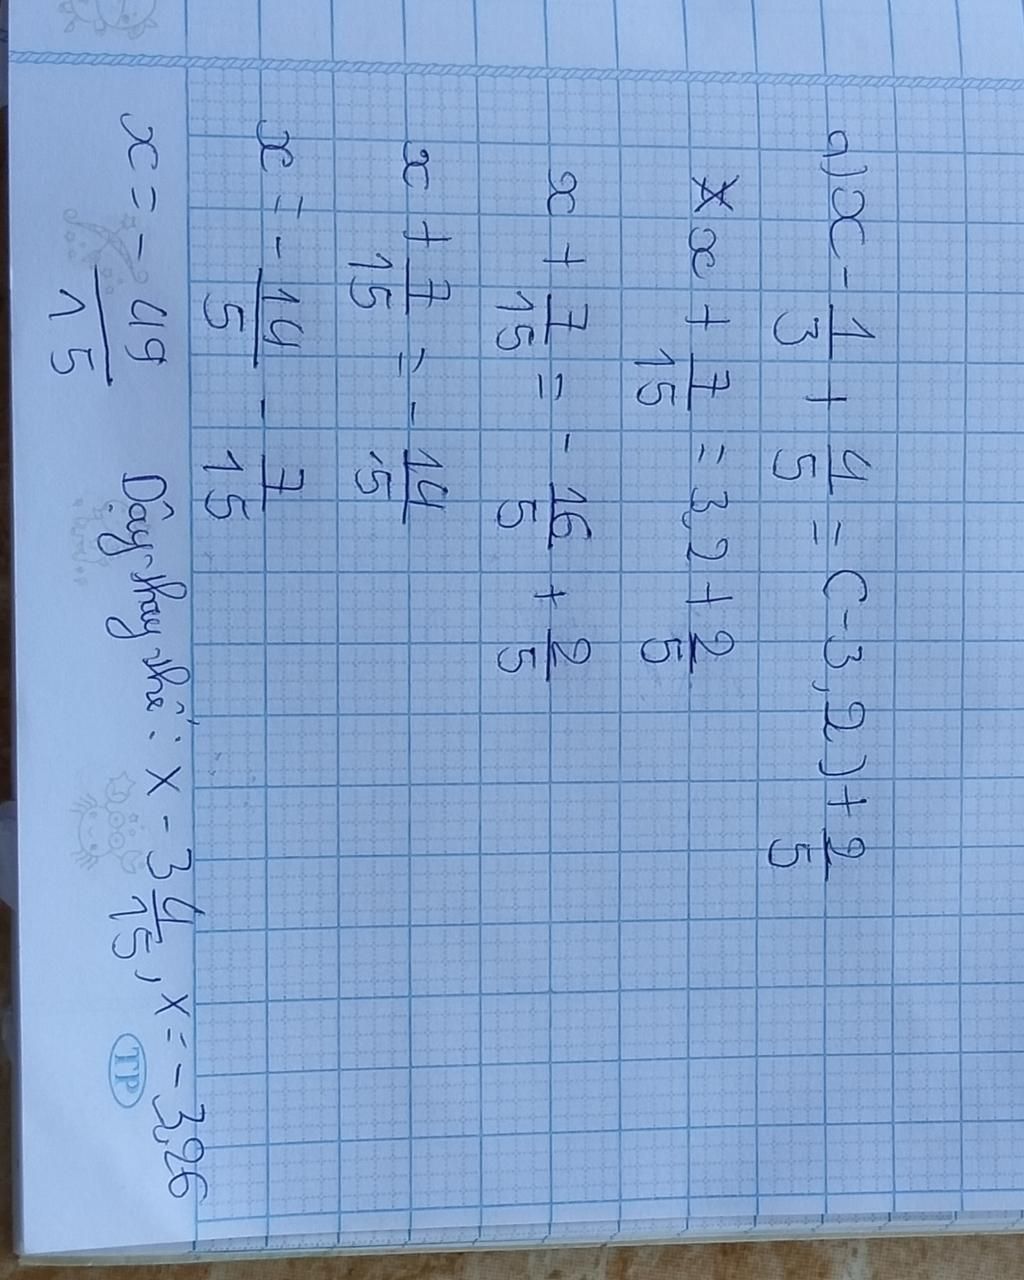 a) x - 1/3 + 4/5 = (-3,2) + 2/5
x + 7/15 = 3,2 + 2/5
x + 7/15 = - 16/5 + 2/5
x + 7/15 = - 14/5
x = - 14/5 - 7/15
x = - 49/15 Dạy thay thế: x - 3 4/15, x = - 3,26
TP